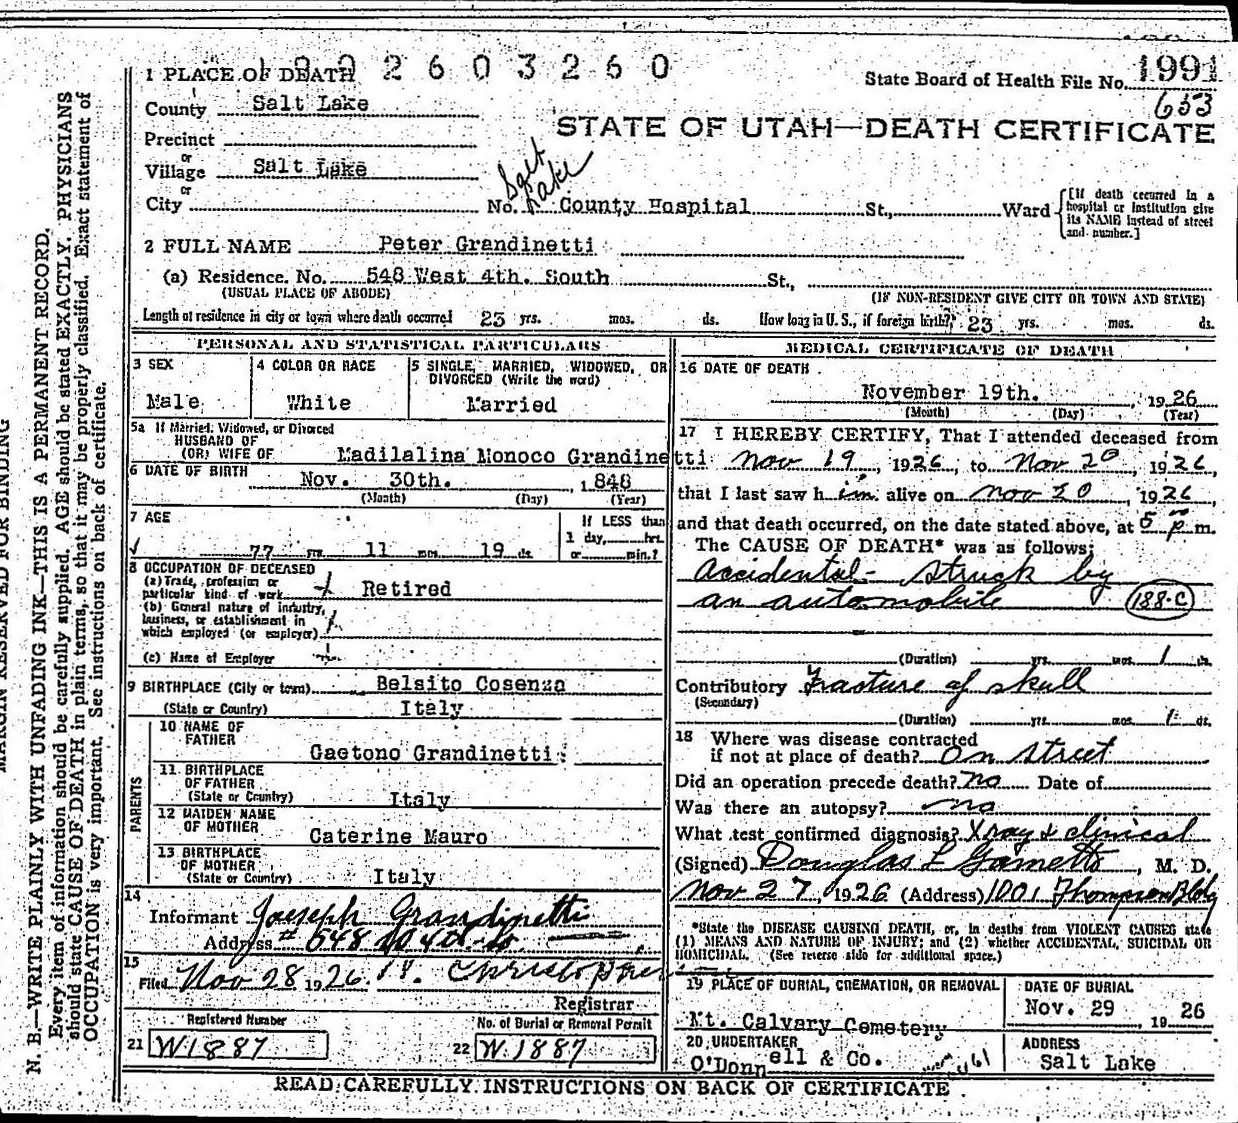 192603260
1 PLACE OF DEATH
State Board of Health File No. 1991
653
County Salt Lake
STATE OF UTAH—DEATH CERTIFICATE
Precinct
or
Village Salt Lake
or
City
No. Salt Lake County Hospital St., Ward
[If death occurred in a hospital or institution give its NAME instead of street and number.]
2 FULL NAME Peter Grandinetti
(a) Residence. No. 548 West 4th. South St.,
(USUAL PLACE OF ABODE)
(IF NON-RESIDENT GIVE CITY OR TOWN AND STATE)
Length of residence in city or town where death occurred 23 yrs. mos. ds. How long in U. S., if foreign birth? 23 yrs. mos. ds.
PERSONAL AND STATISTICAL PARTICULARS
3 SEX
Male
4 COLOR OR RACE
White
5 SINGLE, MARRIED, WIDOWED, OR
DIVORCED (Write the word)
Married
5a If Married, Widowed, or Divorced
HUSBAND OF
(OR) WIFE OF Madilalina Monoco Grandinetti
6 DATE OF BIRTH Nov. 30th. , 1848
(Month) (Day) (Year)
7 AGE
77 yrs. 11 mos. 19 ds.
If LESS than
1 day, hrs.
or min.?
8 OCCUPATION OF DECEASED
(a) Trade, profession or
particular kind of work Retired
(b) General nature of industry,
business, or establishment in
which employed (or employer)
(c) Name of Employer
9 BIRTHPLACE (City or town) Belsito Cosenza
(State or Country) Italy
PARENTS
10 NAME OF
FATHER
Gaetono Grandinetti
11 BIRTHPLACE
OF FATHER
(State or Country) Italy
12 MAIDEN NAME
OF MOTHER Caterine Mauro
13 BIRTHPLACE
OF MOTHER
(State or Country) Italy
14
Informant Joeseph Grandinetti
Address # 548 W 4th So
15
Filed Nov 28 1926.
Registrar
Registered Number
21 W1887
No. of Burial or Removal Permit
22 W.1887
MEDICAL CERTIFICATE OF DEATH
16 DATE OF DEATH
November 19th. , 1926
(Month) (Day) (Year)
17 I HEREBY CERTIFY, That I attended deceased from
Nov 19, 1926, to Nov 20, 1926,
that I last saw him alive on Nov 20, 1926
and that death occurred, on the date stated above, at 5 p m.
The CAUSE OF DEATH* was as follows:
Accidental - Struck by
an automobile 188-C
(Duration) yrs. mos. 1 ds.
Contributory Fracture of skull
(Secondary)
(Duration) yrs. mos. 1 ds.
18 Where was disease contracted
if not at place of death? On street
Did an operation precede death? no Date of
Was there an autopsy? no
What test confirmed diagnosis? Xray & clinical
(Signed) Douglas , M. D.
Nov 27, 1926 (Address) 1001 Thompson Bldg
*State the DISEASE CAUSING DEATH, or, in deaths from VIOLENT CAUSES state
(1) MEANS AND NATURE OF INJURY; and (2) whether ACCIDENTAL, SUICIDAL OR
HOMICIDAL. (See reverse side for additional space.)
19 PLACE OF BURIAL, CREMATION, OR REMOVAL
Mt. Calvary Cemetery
DATE OF BURIAL
Nov. 29 , 1926
20 UNDERTAKER
O'Donnell & Co.
ADDRESS
Salt Lake
READ CAREFULLY INSTRUCTIONS ON BACK OF CERTIFICATE
MARGIN RESERVED FOR BINDING
N. B.—WRITE PLAINLY WITH UNFADING INK—THIS IS A PERMANENT RECORD.
Every item of information should be carefully supplied. AGE should be stated EXACTLY. PHYSICIANS
should state CAUSE OF DEATH in plain terms, so that it may be properly classified. Exact statement of
OCCUPATION is very important. See instructions on back of certificate.